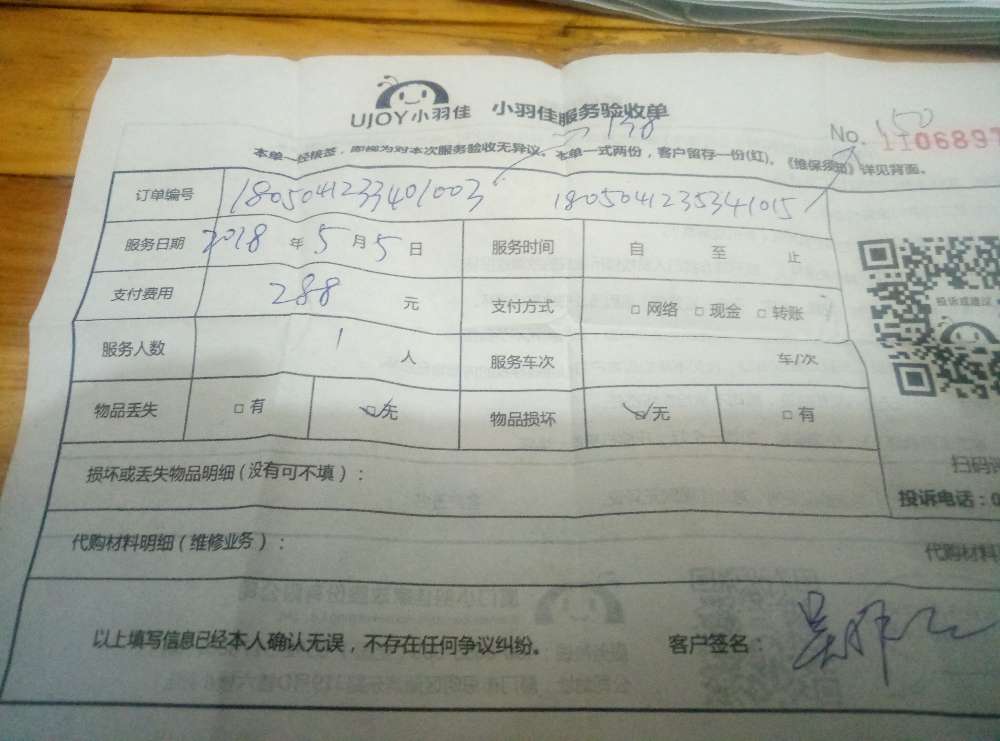 UJOY小羽佳 小羽佳服务验收单
138
150
No. 1106897
本单一经核签，即视为对本次服务验收无异议。本单一式两份，客户留存一份(红)。《维保须知》详见背面。
订单编号 180504123340​1003 1805041235341015
服务日期 2018 年 5 月 5 日 服务时间 自 至 止
支付费用 288 元 支付方式 □ 网络 □ 现金 □ 转账
投诉或建议
服务人数 1 人 服务车次 车/次
物品丢失 □ 有 ☑ 无 物品损坏 ☑ 无 □ 有
损坏或丢失物品明细（没有可不填）：
扫码
投诉电话：0
代购材料明细（维修业务）：
代购材料
以上填写信息已经本人确认无误，不存在任何争议纠纷。 客户签名：